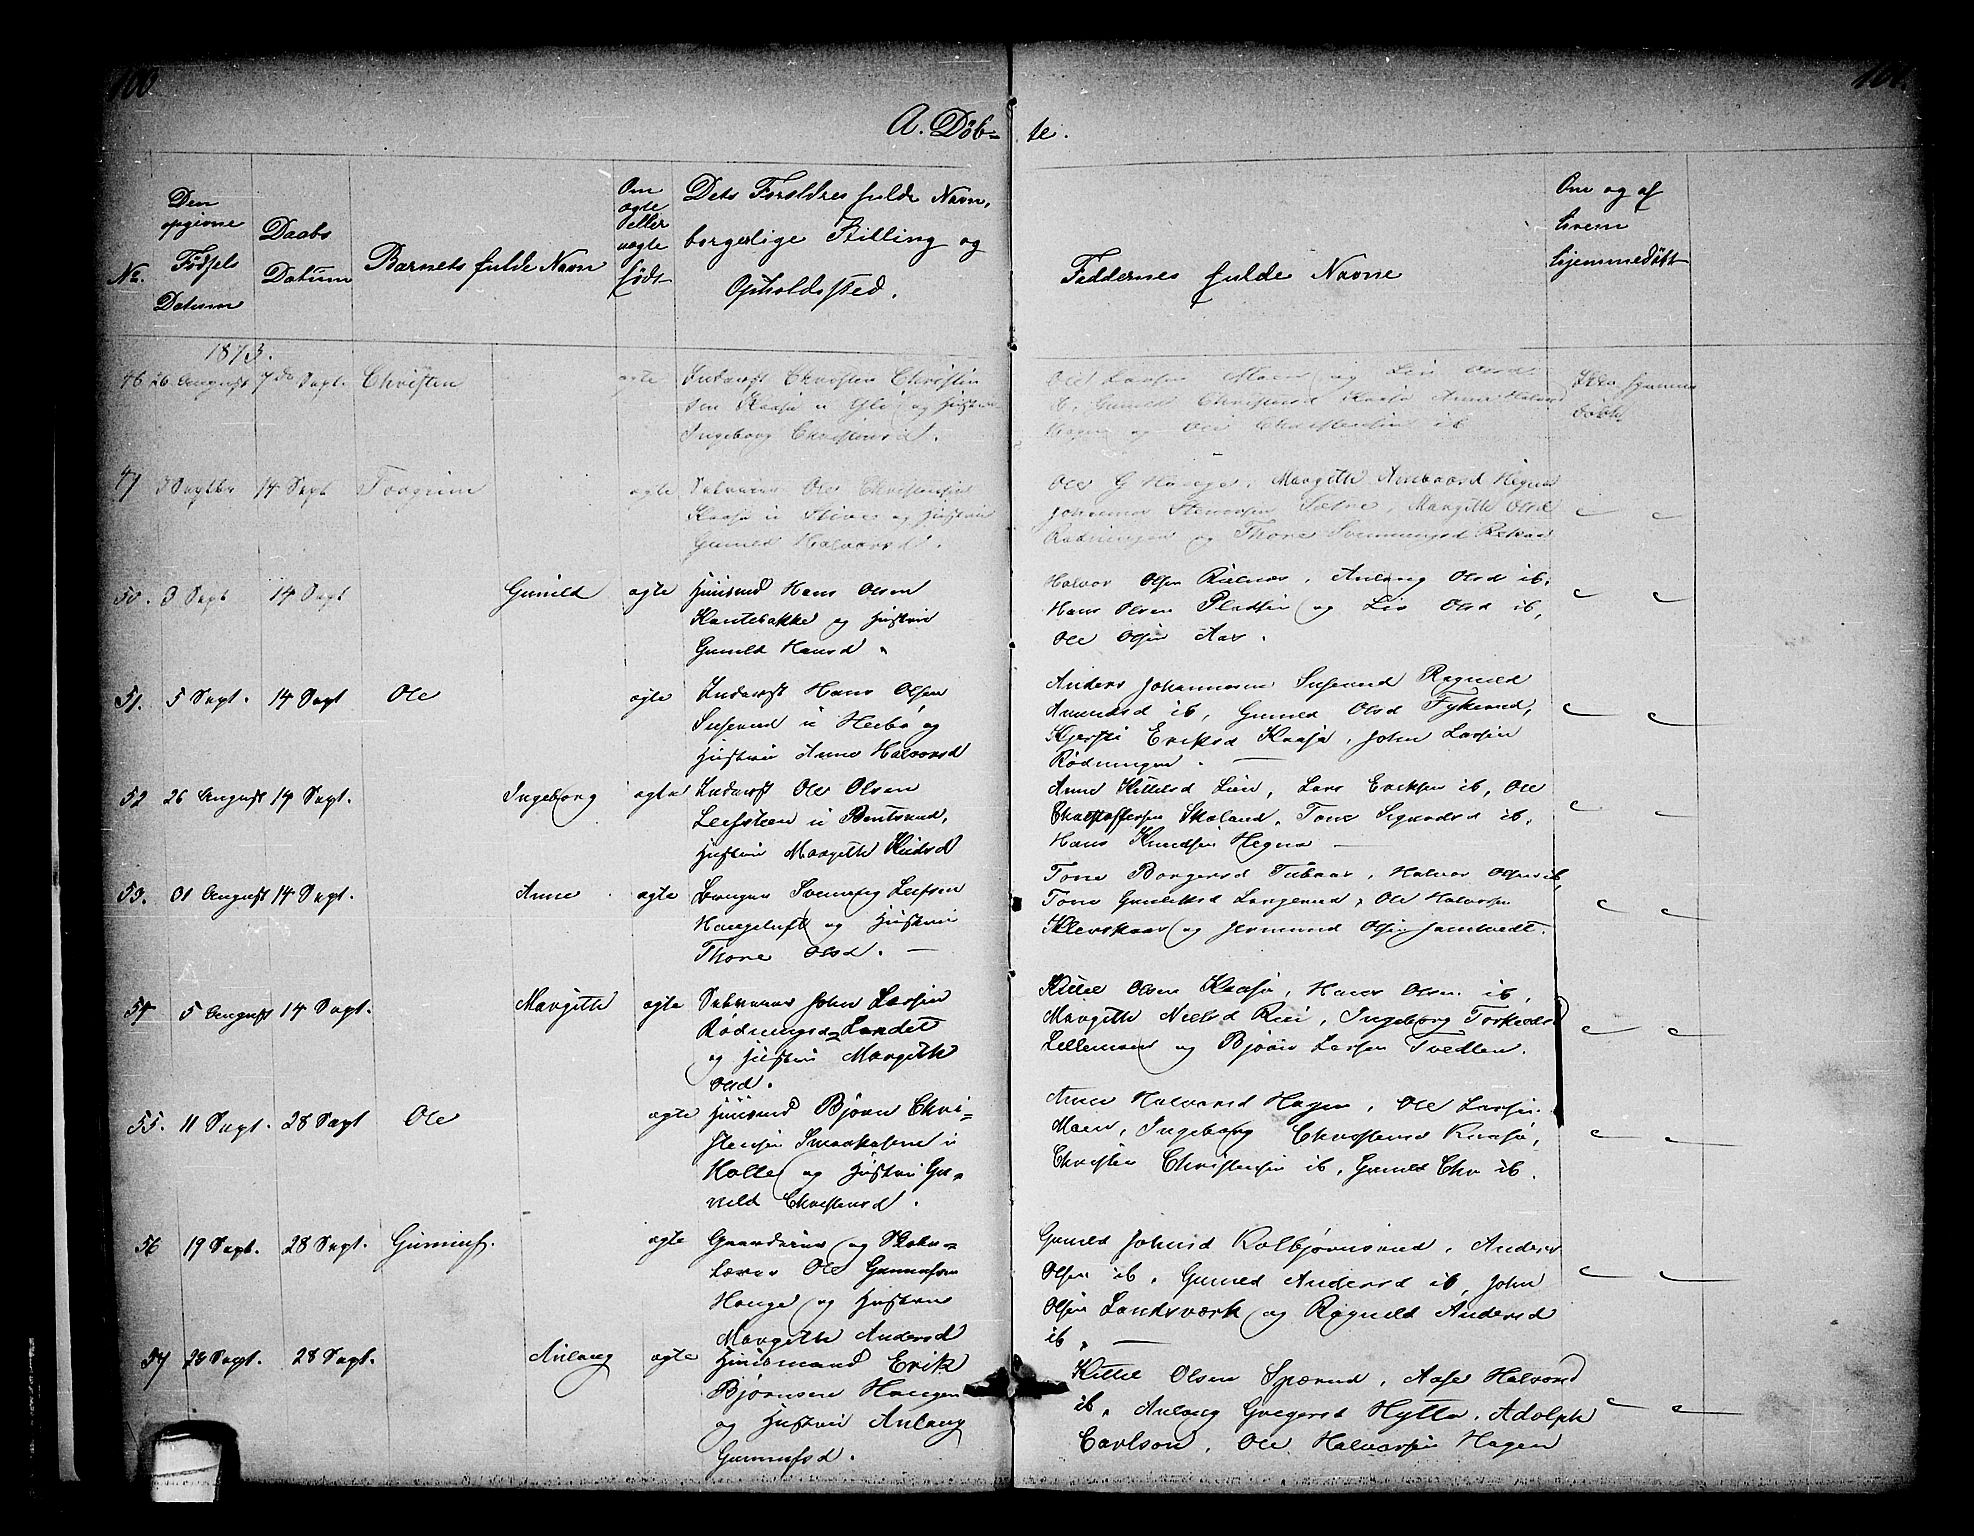 100
101.
A. Döb-
te.
No.
Den opgivne Fødsels Datum
Daabs Datum
Barnets fulde Navn
Om ægte eller uægte født
Dets Forældres fulde Navn, borgerlige Stilling og Opholdssted.
Faddernes fulde Navne
Om og af hvem hjemmedøbt
1873.
46 26 August 7de Sept. Christen
ægte
Christen Christen
sen Kaasa og Hustru
Ingeborg Christensd.
Ole Larsen Moen og Liv Olsd
ib, Gunild Christensd Kaasa Anne Halvorsd
Hagen og Ole Christensen ib
47 Septbr 14 Sept Torgrim
ægte
Selveier Ole Christensen
Kaasa og Hustru
Gunild Halvorsd.
Ole G Hauge, Margith Hegna
Johannes Stenersen Sætre, Margith Olsd
Rødningen og Thone Svenningsd
50. 3 Sept 14 Sept
Gunild
ægte
Huusmd Hans Olsen
Kantebakke og Hustru
Gunild Hansd
Halvor Olsen, Anlaug Olsd ib,
Hans Olsen Pladsen og Liv Olsd ib,
Ole Olsen Aas.
51. 5 Sept. 14 Sept Ole
ægte
Inderst Hans Olsen
Suserud i Heibø og
Hustru Anne Halvorsd
Anders Johannesen Suserud Ragnild
Amundsd ib, Gunild Olsd Fykerud,
Kjersti Eriksd Kaasa, John Larsen
Rødningen. —
52 26 August 14 Sept.
Ingeborg
ægte
Inderst Ole Olsen
Leifsteen i Bentsrud,
Hustru Margith
Anne Kittelsd Lien, Lars Eriksen ib, Ole
Christoffersen Skoland, Tone Sigurdsd ib,
Hans Knudsen Hegna —
53. 31 August 14 Sept.
Anne
ægte
Svennung Leifsen
Haugeluft og Hustru
Thone Olsd. —
Tone Borgersd, Halvor Olsen ib,
Tone Gunleiksd Langerud, Ole Halvorsen
Kleivskaas og Jermund Olsen Jamtvedt.
54 5 August 14 Sept.
Margith
ægte
Selveier John Larsen
Rødningsd=Landet
og Hustru Margith
Olsd.
Kittel Olsen Kaasa, Hans Olsen ib,
Margith Nielsd Rui, Ingeborg
Lillemoen og Bjørn Larsen Tvedten.
55. 11 Sept. 28 Sept Ole
ægte
Huusmd Bjørn Chri=
stensen i
Holte og Hustru Gu=
nild Christensd.
Anne Halvorsd Hagen, Ole Larsen
Moen, Ingeborg Christensd Kaasa,
Christen Christensen ib, Gunild Chr ib.
56 19 Sept. 28 Sept. Gunnuf.
ægte
Gaardeier og Skole=
lærer Ole Gunnufsen
Hauge og Hustru
Margith Andersd
Gunild Johnsd Kolbjørnsrud, Anders
Olsen ib, Gunild Andersd ib, John
Olsen Landsværk og Ragnild Andersd
ib. —
57 28 Sept. 28 Sept.
Anlaug
ægte
Huusmand Erik
Bjørnsen Haugen
og Hustru Anlaug
Gunnufsd.
Kittil Olsen Sperud, Aase Halvorsd
ib, Anlaug Gregersd Hytta, Adolph
Carlson, Ole Halvorsen Hagen